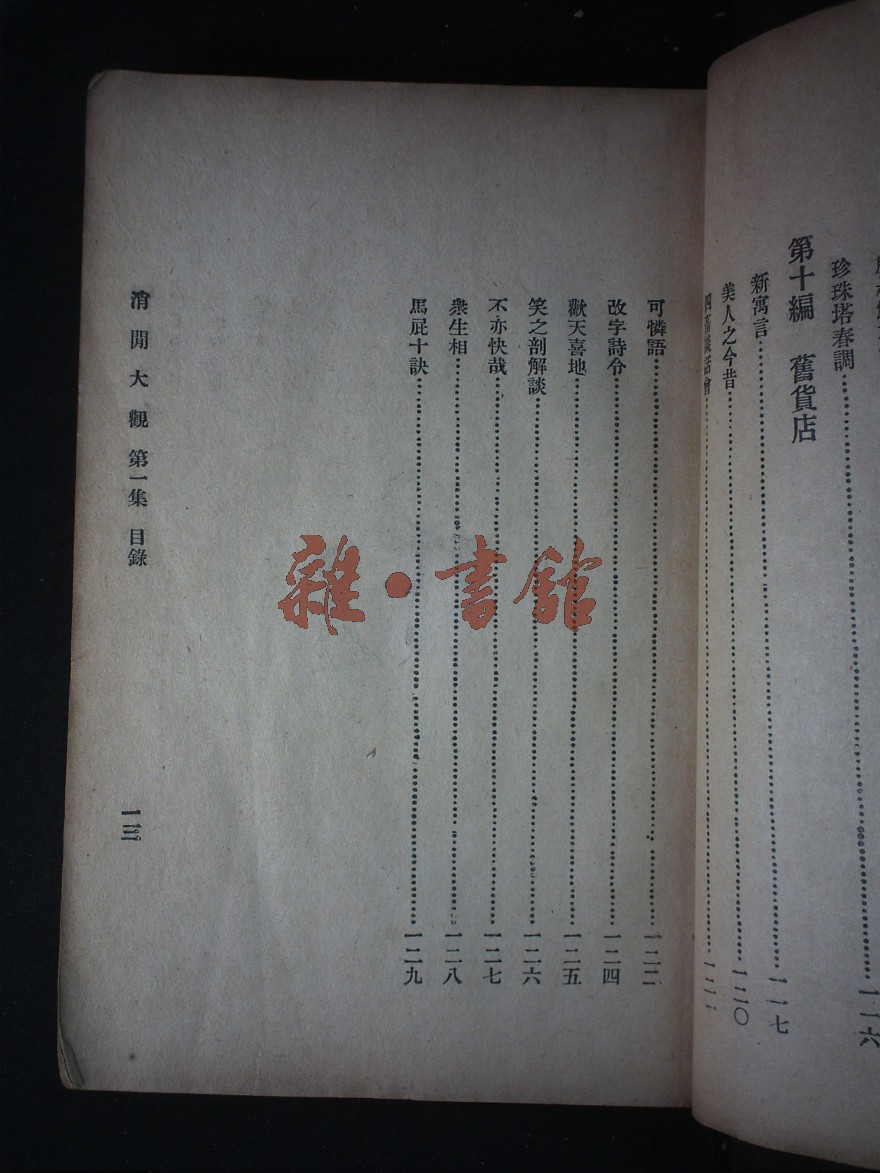 珍珠塔春調……一一六
第十編　舊貨店
新寓言……一一七
美人之今昔……一二〇
可憐語……一二二
改字詩令……一二四
歡天喜地……一二五
笑之剖解談……一二六
不亦快哉……一二七
衆生相……一二八
馬屁十訣……一二九
消閒大觀 第一集 目錄
一三
雜·書館